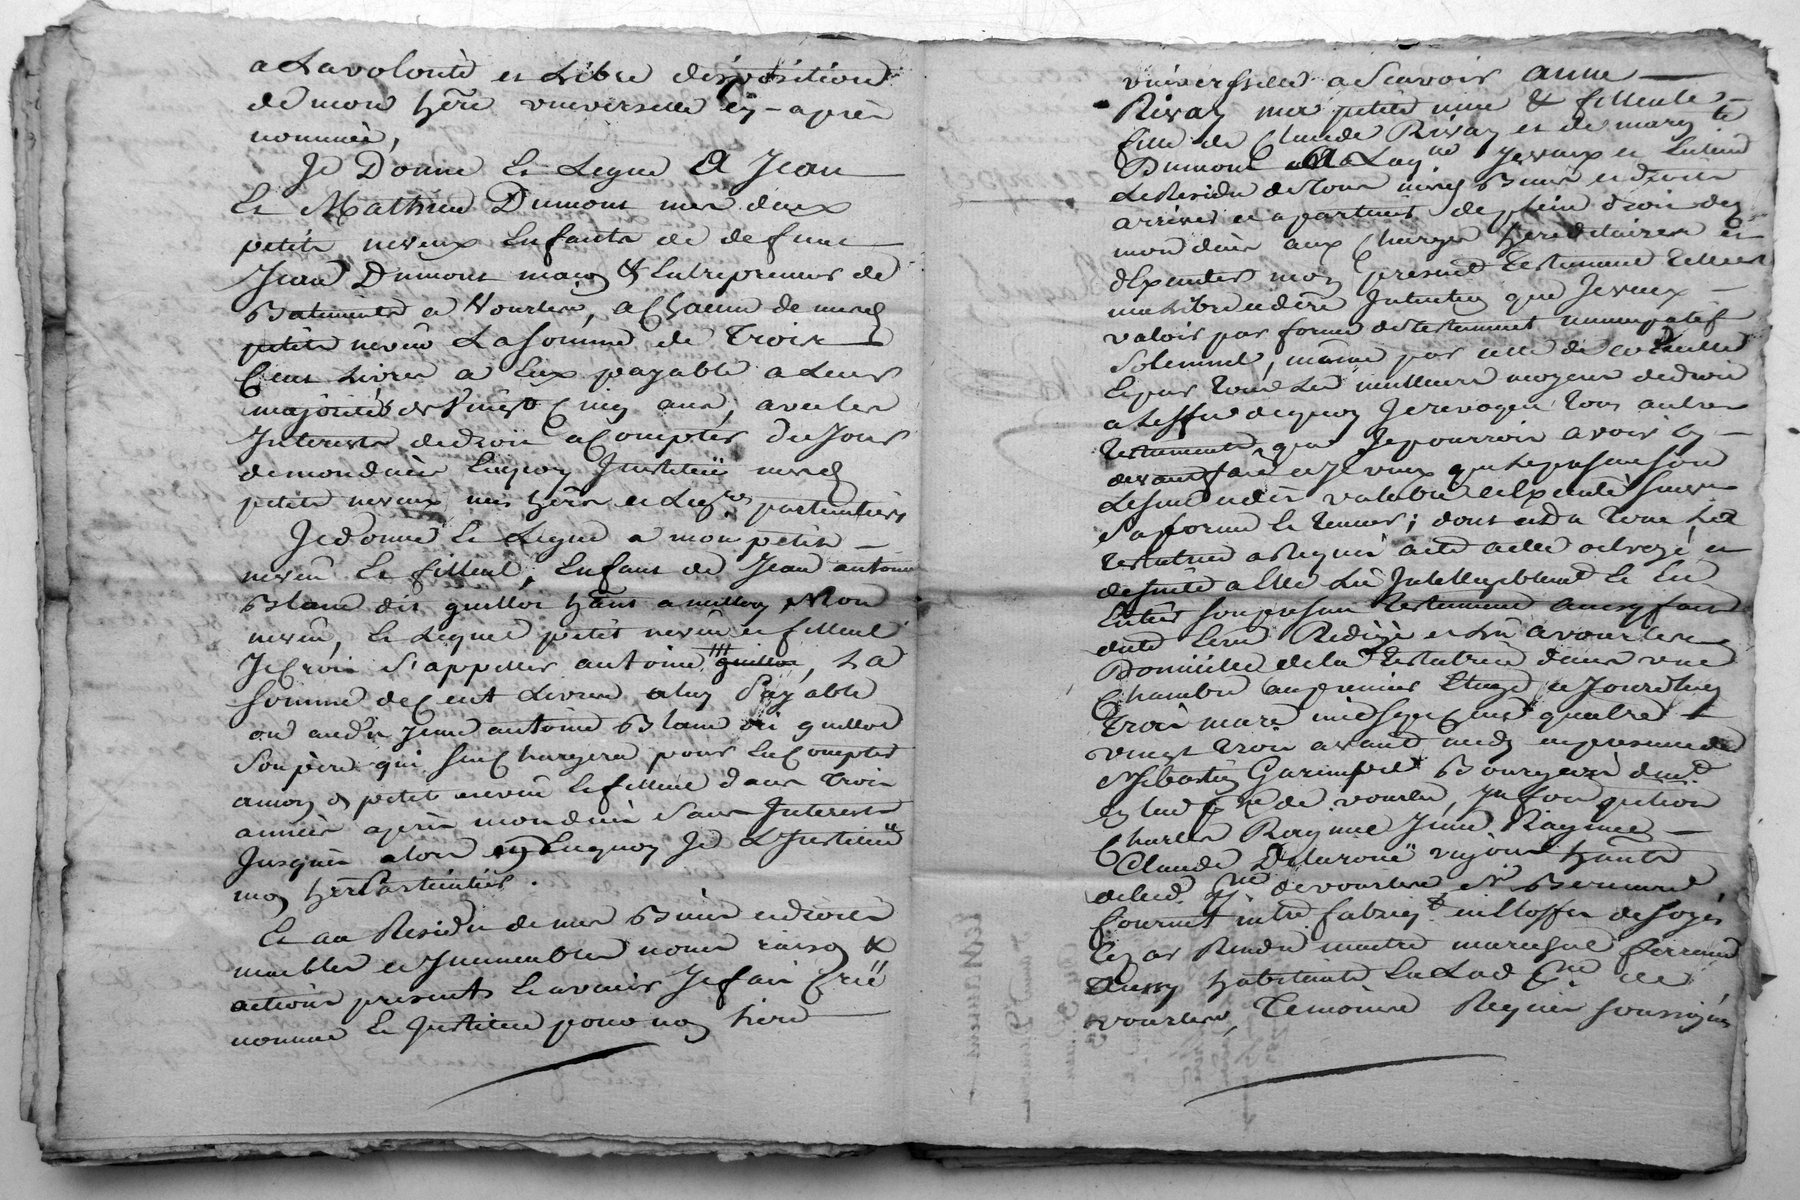 a La volonté et Libre disposition
de mon hére universelle cy-après
nommée,
Je Donne Et Legue A Jean
Et Mathieu Dumont mes deux
petits neveux Enfants de defunt
Jean Dumont maçon & Entrepreneur de
Batiments a Vourles, a Chacun de mesd
petits neveu La somme de Trois
Cent Livres a Eux payable a Leur
majorités de Vingt Cinq ans, avec les
Interests de droit a Compter du Jour
de mon décès En quoy J'institüe mesd
petits neveux mes hérs et Legres particuliers
Je donne Et Legue a mon petit
neveu Et filleul, Enfant de Jean antoine
Blanc dit guillot habt a millery Mon
neveu, Le quel petit neveu et filleul
Je Crois s'appeller antoine guillot, La
somme de Cent Livres a luy payable
ou aud. Jean antoine Blanc dit guillot
son père qui s'en Chargera pour En Compter
a mond petit neveu Et filleul dans trois
années après mon décès sans Interests
Jusques alors En quoy Je L'Institüe
mon hér Particulier.
Et au Residu de mes Biens et droits
meubles et Immeubles noms raisons &
actions presents Et avenir Je fais Crée
nomme Et Institue pour mon hére
universelle a Scavoir anne
Rivay ma petite niece & filleule
fille de Claude Rivay et de marg.te
Dumont A Laqlle Je veux et Entend
Le Residu de tous mesd Biens et droits
arriver et apartenir de plein droit dez
mon décès aux Charges héréditaires et
d'Executer mon present Testament Telle est
ma Libre et dère Intention que Je veux
valoir par forme de testament nuncupatif
Solemnel, même par celle de Codicille
Et par tous Les meilleurs moyens de droit
a L'effet de quoy Je revoque tous autres
testaments que Je pourrois avoir cy
devant fait et Je veux que Le present soit
Le seul et dèr valable et Executé suivant
Sa forme Et teneur; dont et du tout La
testatrice a Requis acte a elle octroyé et
de suite a Elle Lû Intelligiblement Et En
Entier son present Testament ainsy fait
dicté Ecrit Redigé et Lû a vourles
Domicile de la Testatrice dans une
Chambre au premier Etage ce Jourdhuy
trois mars mil sept Cent quatre
vingt trois avant midy en presence de
Sr Sébastien Garempel Bourgeois dud.
En lad psse de vourles,
Charles Raynard Jean Raynard
Claude Delaroüe vignerons habts
de lad. psse de vourles, Sr Bernard
fournet mtre fabriqt en Etoffes de soyes
Cezar Rendu maitre marechal ferrand
Aussy habitants En Lad. psse de
vourles Temoins Requis soussignés